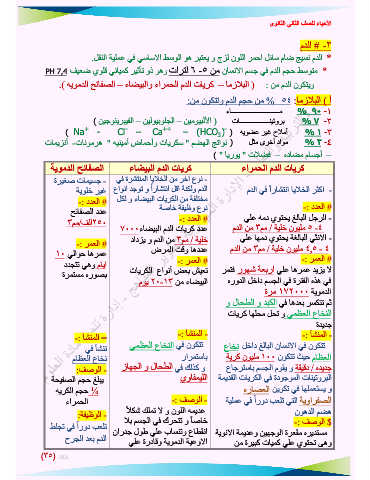 الأحياء للصف الثاني الثانوي
٣- # الدم
* الدم نسيج ضام سائل أحمر اللون لزج و يعتبر هو الوسط الأساسي في عملية النقل.
* متوسط حجم الدم في جسم الإنسان من ٥-٦ لترات وهو ذو تأثير كميائي قلوي ضعيف PH 7,4
ويتكون الدم من : ( البلازما – كريات الدم الحمراء والبيضاء – الصفائح الدموية ).
أ ) البلازما: ٥٤ % من حجم الدم وتتكون من:
١- ٩٠ % مــاء
٢- ٧ % بروتينات ( الألبيومين – الجلوبيولين – الفيبرينوجين )
٣- ١ % أملاح غير عضوية ( Na+ - Cl- – Ca++ – (HCO3)- )
٤- ٢ % مواد أخرى مثل ( نواتج الهضم " سكريات وأحماض أمينيه " هرمونات- أنزيمات
– أجسام مضاده – فضلات " يوريا " )
كريات الدم الحمراء
- أكثر الخلايا انتشاراً في الدم
# العدد :-
- الرجل البالغ يحتوي دمه علي
٤ - ٥ مليون خلية / مم٣ من الدم
- الأنثى البالغة يحتوي دمها علي
٤ - ٤,٥ مليون خلية / مم٣ من الدم
# العمر :-
لا يزيد عمرها علي أربعة شهور فتمر
في هذه الفترة في الجسم داخل الدوره
الدموية ١٧٢٠٠٠ مرة
ثم تتكسر بعدها في الكبد و الطحال و
النخاع العظمي و تحل محلها كريات
جديدة
- المنشأ :-
تتكون في الانسان البالغ داخل نخاع
العظام حيث تتكون ١٠٠ مليون كرية
جديده / دقيقة و يقوم الجسم باسترجاع
البروتينات الموجودة في الكريات القديمة
و يستعملها في تكوين العصاره
الصفراوية التي تلعب دوراً في عملية
هضم الدهون
$ الوصف :-
مستديره مقعرة الوجهين وعديمة الانوية
وهي تحتوي علي كميات كبيرة من
كريات الدم البيضاء
- نوع آخر من الخلايا المنتشرة في
الدم ولكنة أقل انتشاراً و توجد أنواع
مختلفة من الكريات البيضاء و لكل
نوع وظيفة خاصة
# العدد :-
عدد كريات الدم البيضاء ٧٠٠٠
خلية / مم٣ من الدم و يزداد
عددها وقت المرض
# العمر :-
تعيش بعض أنواع الكريات
البيضاء من ١٣-٢٠ يوم
- المنشأ :-
تتكون في النخاع العظمي
باستمرار
و كذلك في الطحال و الجهاز
الليمفاوي
- الوصف :-
عديمه اللون و لا تملك شكلاً
خاصاً و تتحرك في الجسم بلا
انقطاع وتنساب علي طول جدران
الاوعية الدموية وقادرة علي
الصفائح الدموية
- جسيمات صغيرة
غير خلوية
# العدد :-
عدد الصفائح
٢٥٠ألف/مم٣
# العمر :-
عمرها حوالي ١٠
أيام وهي تتجدد
بصوره مستمرة
– المنشأ :-
تنشأ في
نخاع العظام
- الوصف:
يبلغ حجم الصفيحة
¼ حجم الكريه
الحمراء
- الوظيفة:
تلعب دوراً في تجلط
الدم بعد الجرح
(٣٥)